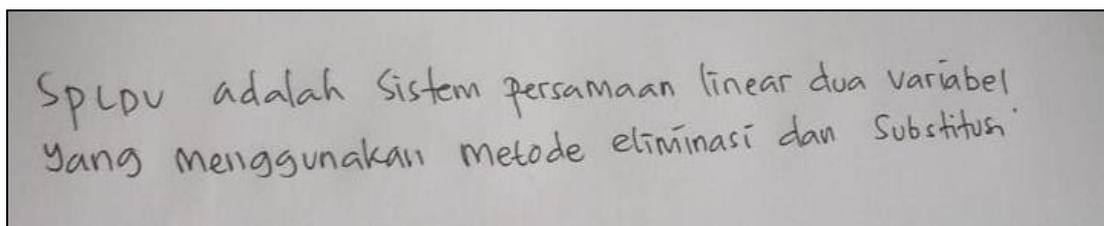 SPLDV adalah sistem persamaan linear dua variabel
yang menggunakan metode eliminasi dan substitusi